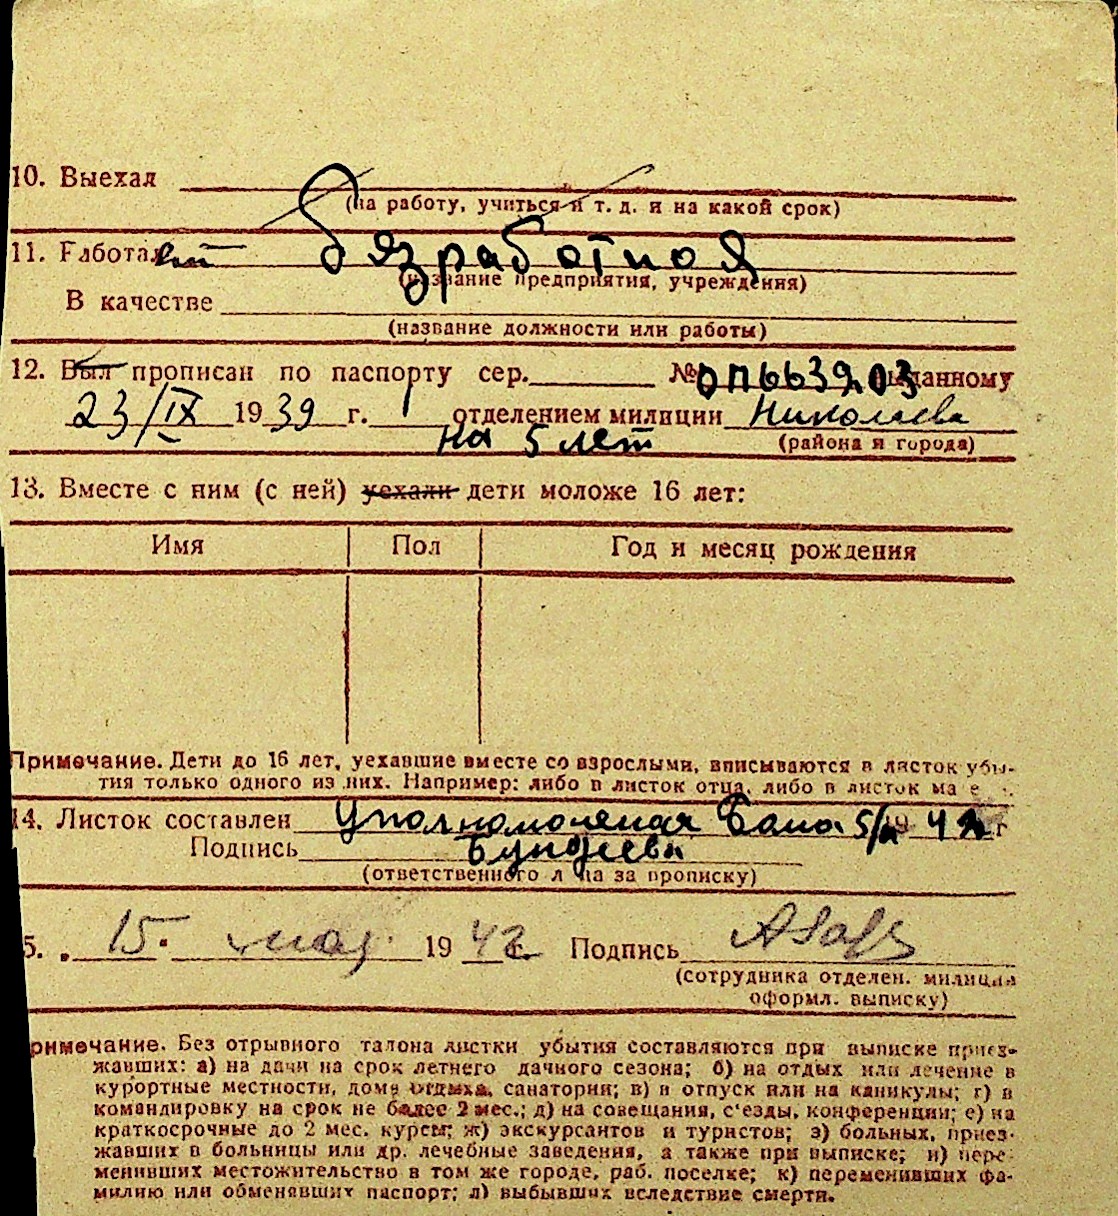 10. Выехал
(на работу, учиться и т. д. и на какой срок)
11. Работает безработная
(название предприятия, учреждения)
В качестве
(название должности или работы)
12. Был прописан по паспорту сер. № ОП663903 выданному
23/IX 1939 г. 1 отделением милиции Николаева
на 5 лет (района и города)
13. Вместе с ним (с ней) уехали дети моложе 16 лет:
Имя Пол Год и месяц рождения
Примечание. Дети до 16 лет, уехавшие вместе со взрослыми, вписываются в листок убы-
тия только одного из них. Например: либо в листок отца, либо в листок
14. Листок составлен Уполномоченая 19 42 г
Подпись
(ответственного лица за прописку)
5. 15 мая 1942 г. Подпись
(сотрудника отделен. милиции
оформл. выписку)
римечание. Без отрывного талона листки убытия составляются при выписке приез-
жавших: а) на дачи на срок летнего дачного сезона; б) на отдых или лечение в
курортные местности, дома отдыха, санатории; в) в отпуск или на каникулы; г) в
командировку на срок не более 2 мес.; д) на совещания, с'езды, конференции; е) на
краткосрочные до 2 мес. курсы; ж) экскурсантов и туристов; з) больных, приез-
жавших в больницы или др. лечебные заведения, а также при выписке; и) пере-
менивших местожительство в том же городе, раб. поселке; к) переменивших фа-
милию или обменявших паспорт; л) выбывших вследствие смерти.